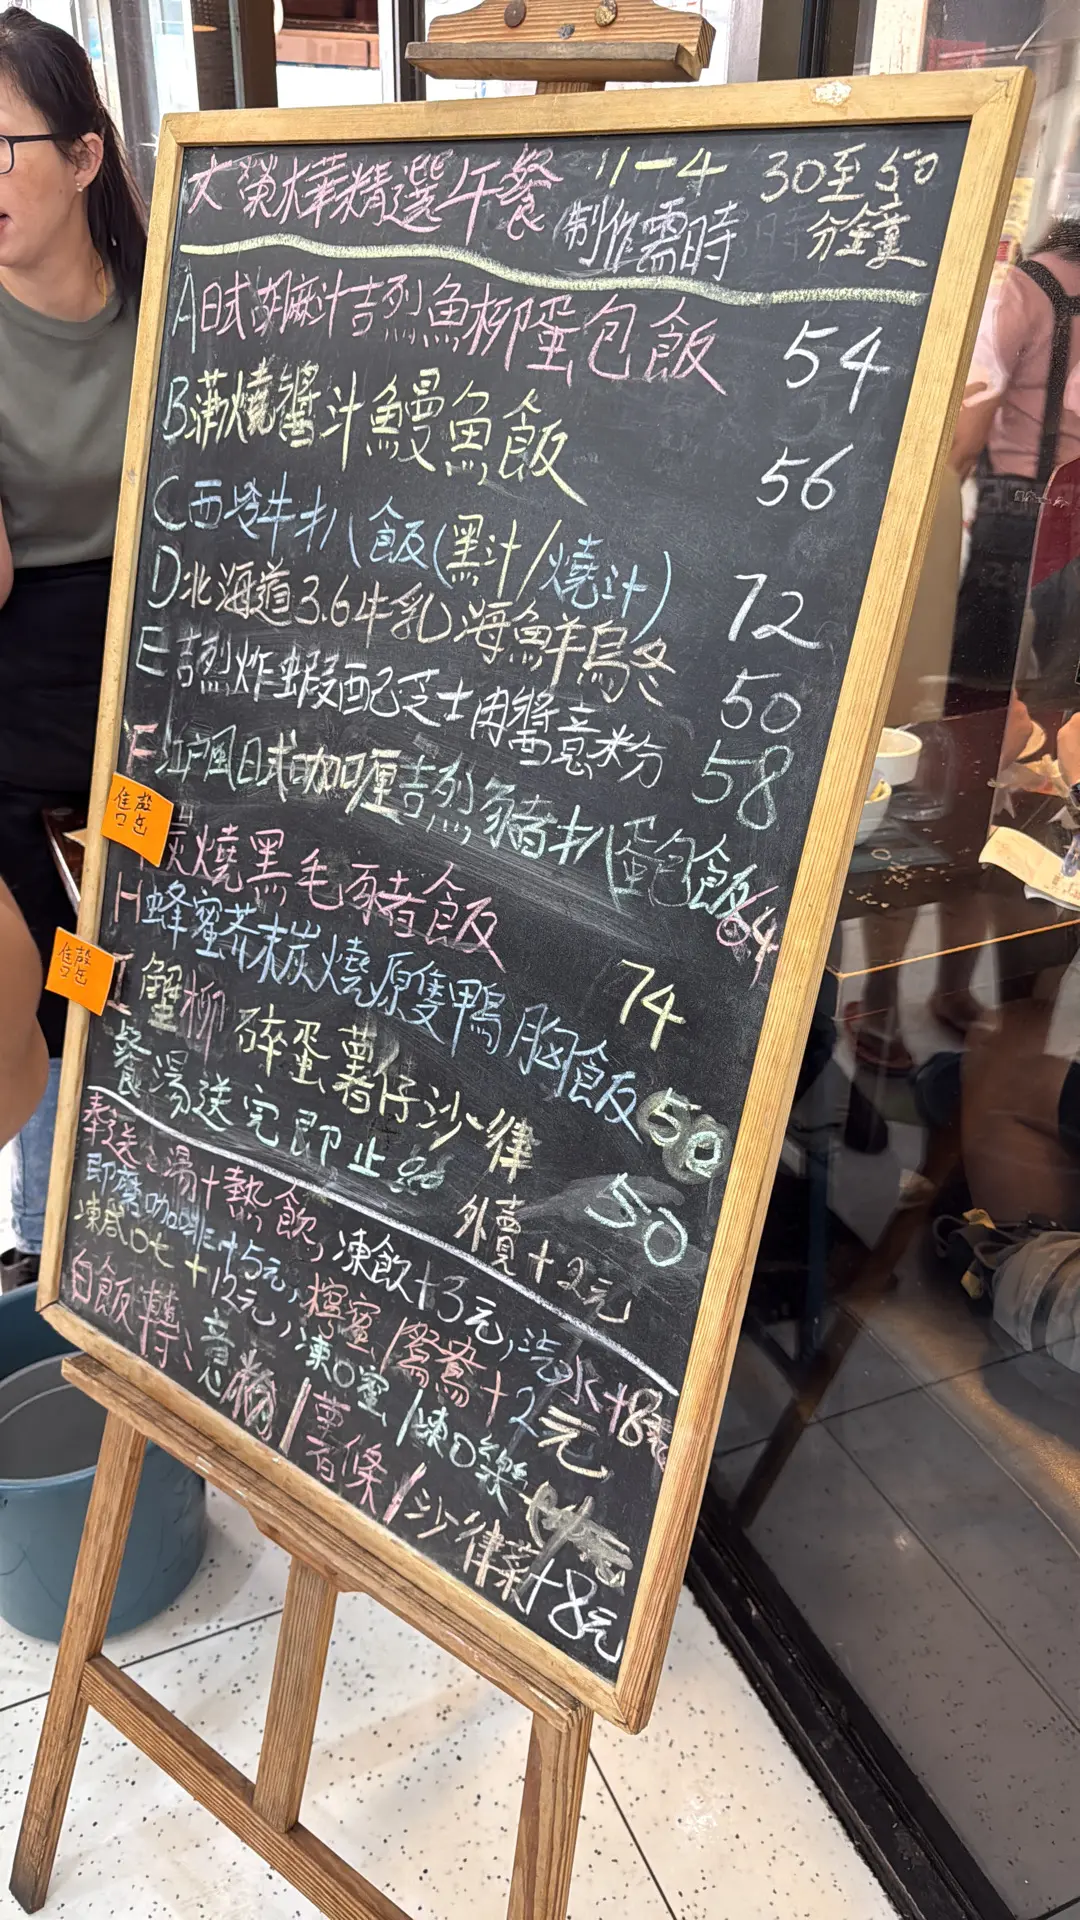 大榮華精選午餐 11-4 30至50
制作需時 分全童
A日式胡麻汁吉列魚柳蛋包飯 54
B蒲燒醬汁鰻魚飯 56
C西冷牛扒飯(黑汁/燒汁) 72
D北海道3.6牛乳海鮮烏冬 50
E吉列炸蝦配芝士肉醬意粉 58
F江戶風日式咖喱吉列豬扒蛋包飯 64
售罄
炭燒黑毛豬飯 74
H蜂蜜芥末炭燒原隻鴨胸飯 50
售罄
I蟹柳碎蛋薯仔沙律 50
餐湯送完即止 外賣+2元
奉送:湯+熱飲,凍飲+3元,汽水+8元
即磨咖啡+5元,檸蜜/鴛鴦+2元
凍咸0七+12元,凍0蜜/凍0樂
白飯轉:意粉/薯條/沙律菜+8元